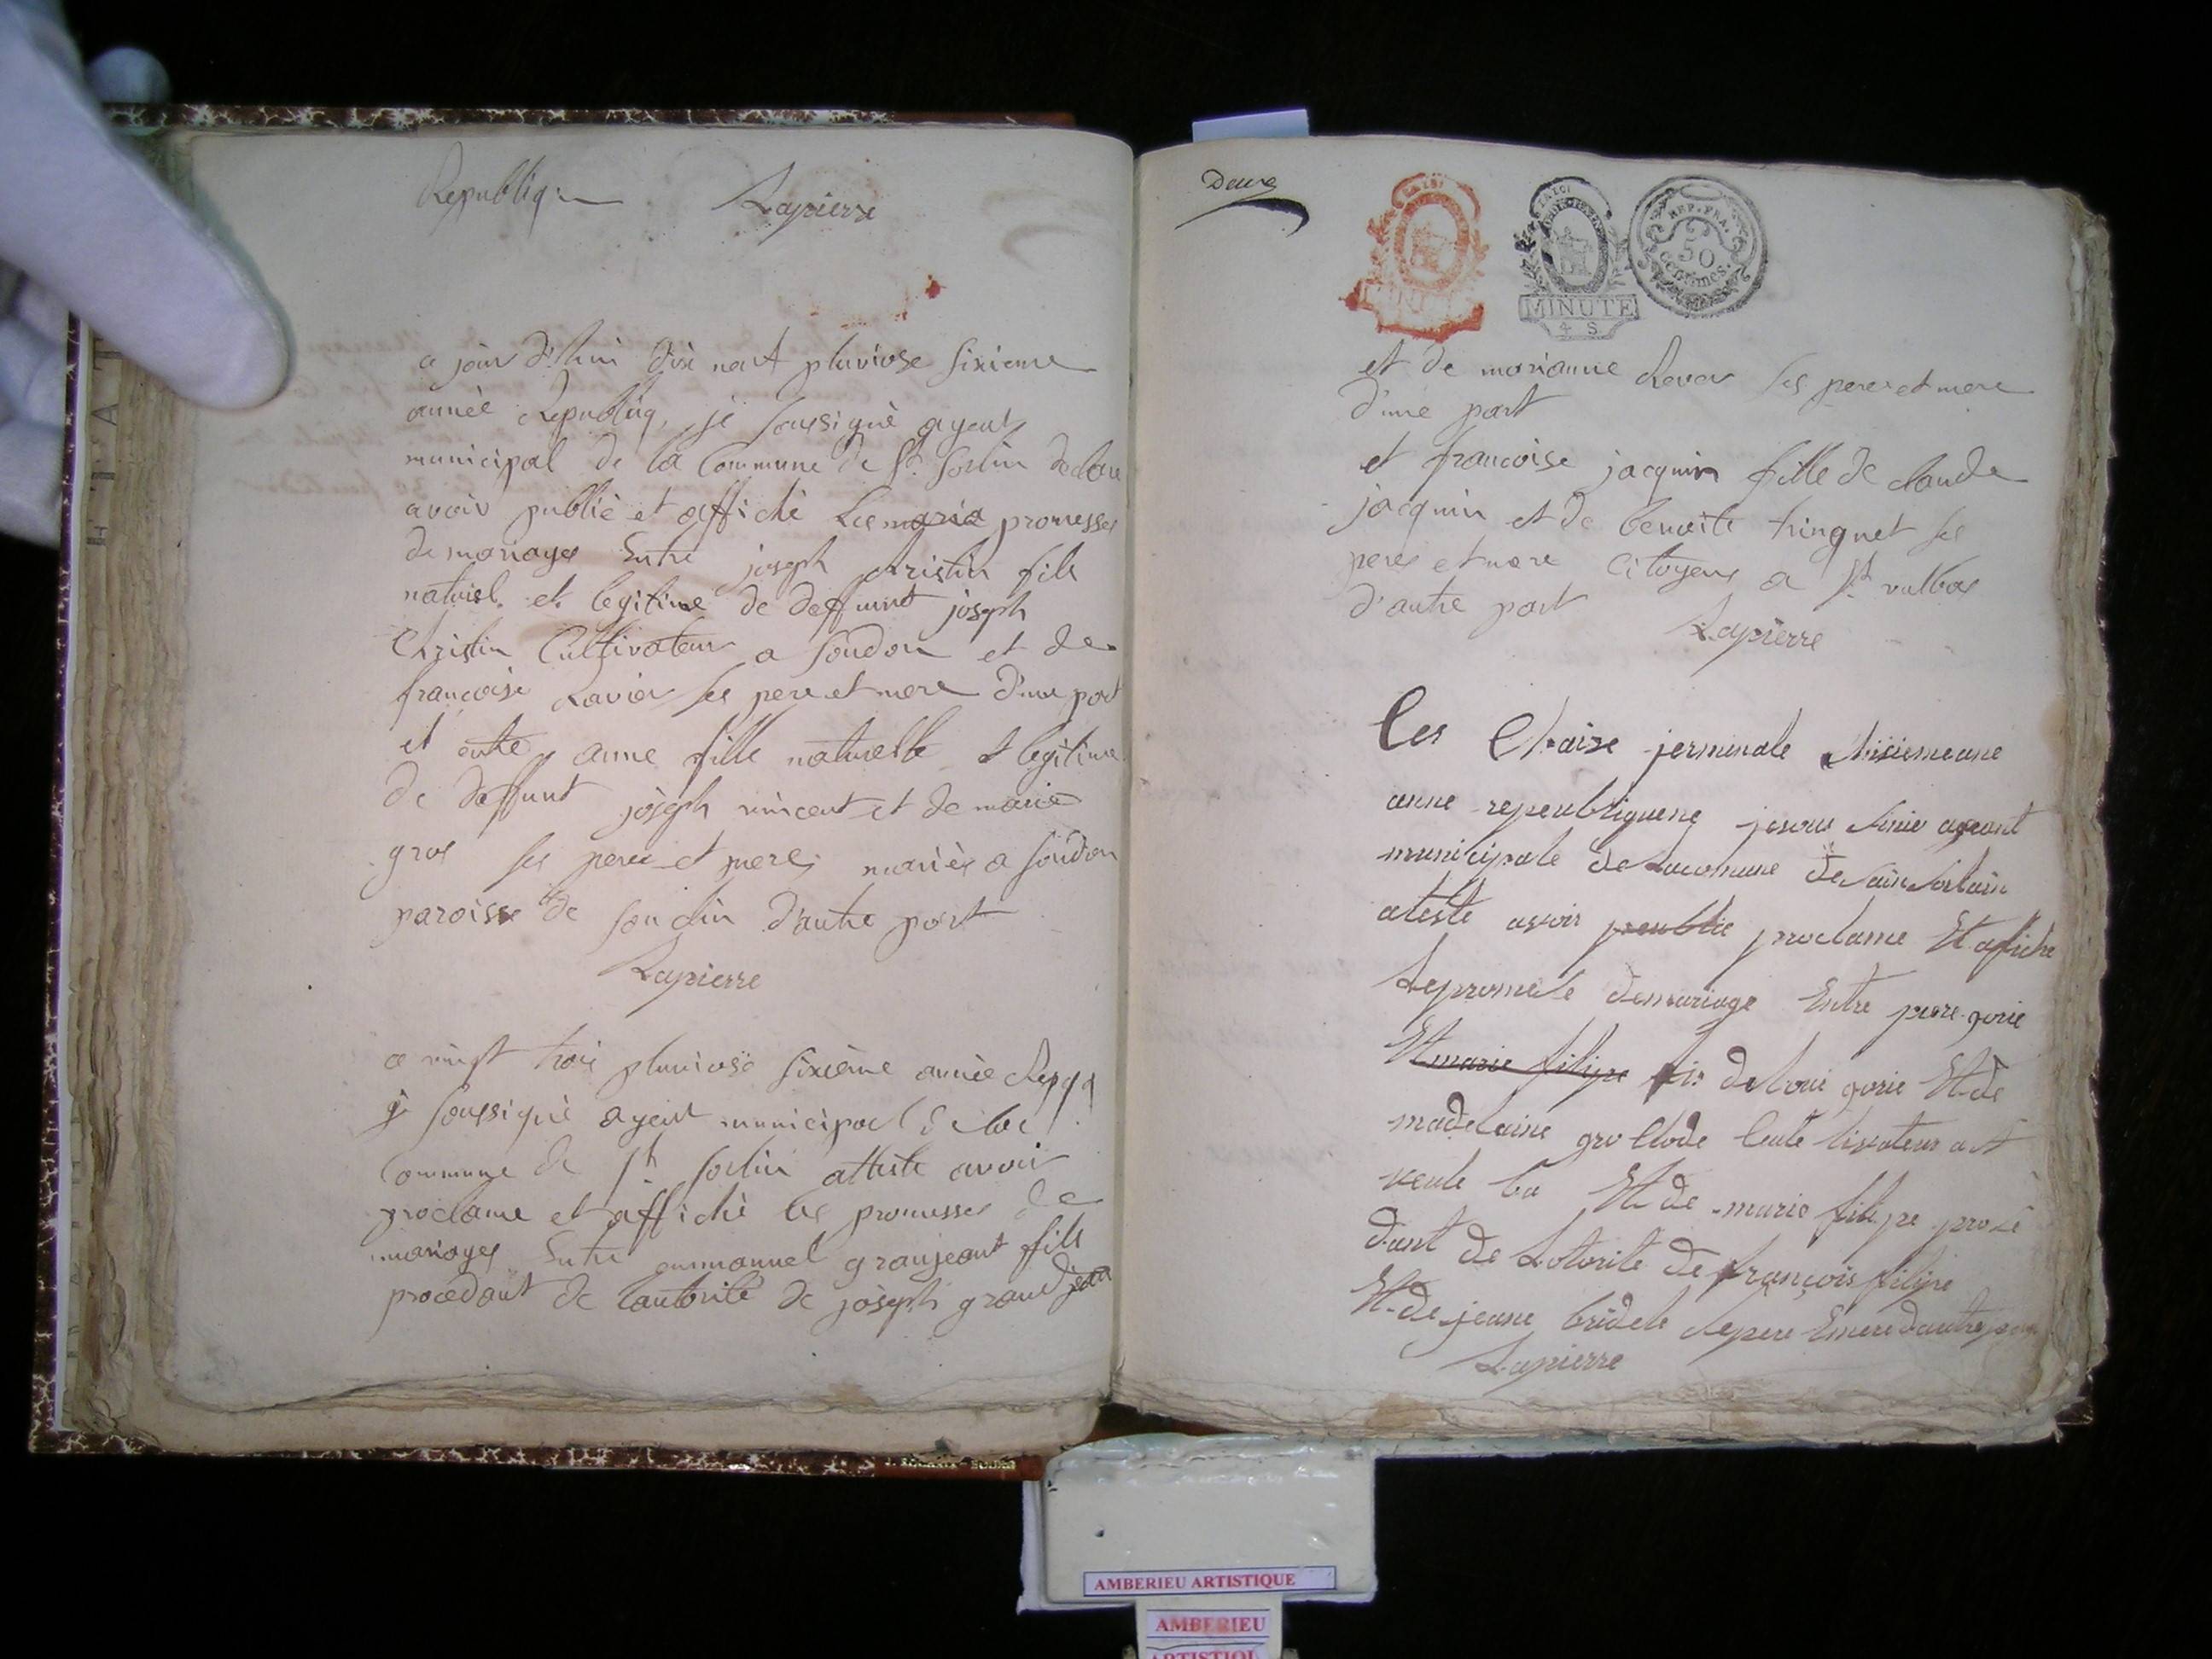 Republiq:
Lapierre
a jour d'hui dix neuf pluviose sixieme
année Republiq, je soussigné agent
municipal de la Commune de St. Sorlin declare
avoir publié et affiché les promesses
de mariages Entre joseph christin fils
naturel et legitime de deffunt joseph
Christin Cultivateur a soudon et de
francoise Ravier ses pere et mere d'une part
et entre anne fille naturelle et legitime
de deffunt joseph vincent et de marie
gros ses peres et mere, mariés a soudon
paroisse de d'autre part
Lapierre
a vingt trois pluviose sixième année Repqq
je soussigné agent municipal de la
Commune de St Sorlin atteste avoir
proclame et affiché les promesses de
mariages Entre emmanuel granjeant fils
procedant de l'autorité de joseph grand jean
Deux
REP. FRA.
50
centimes.
MINUTE
4 S
et de marianne Raver ses pere et mere
d'une part
et francoise jacquin fille de claude
jacquin et de benoite tringuet ses
peres et mere Citoyens a St vulbas
d'autre part
Lapierre
Les jerminale
anne republiquene jesous sinie ageant
municipale de lacomune de sain sorlain
ateste avoir peublie proclame Et afiche
Lepromese demariage Entre piere gorie
Et marie filipe fis de loui gorie Et de
madelaine gro Clode Cultivateur a st
veule ba Et de marie filipe prose
dant de Lotorite de françois filipe
Et de jeane bridele sepere Emere dautre part
Lapierre
AMBERIEU ARTISTIQUE
AMBERIEU
ARTISTIQUE